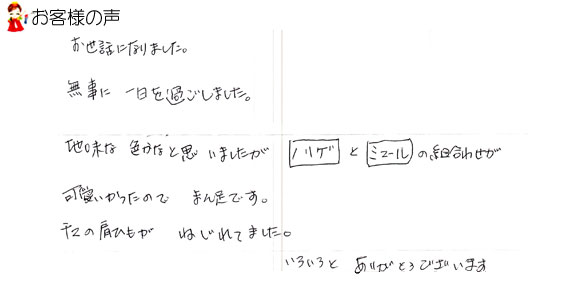 お客様の声
お世話になりました。
無事に 一日を過ごしました。
地味な 色かなと思いましたが ノリゲ と ミュール の組合わせが
可愛いかったので まん足です。
チマの肩ひもが ねじれてました。
いろいろと ありがとうございます